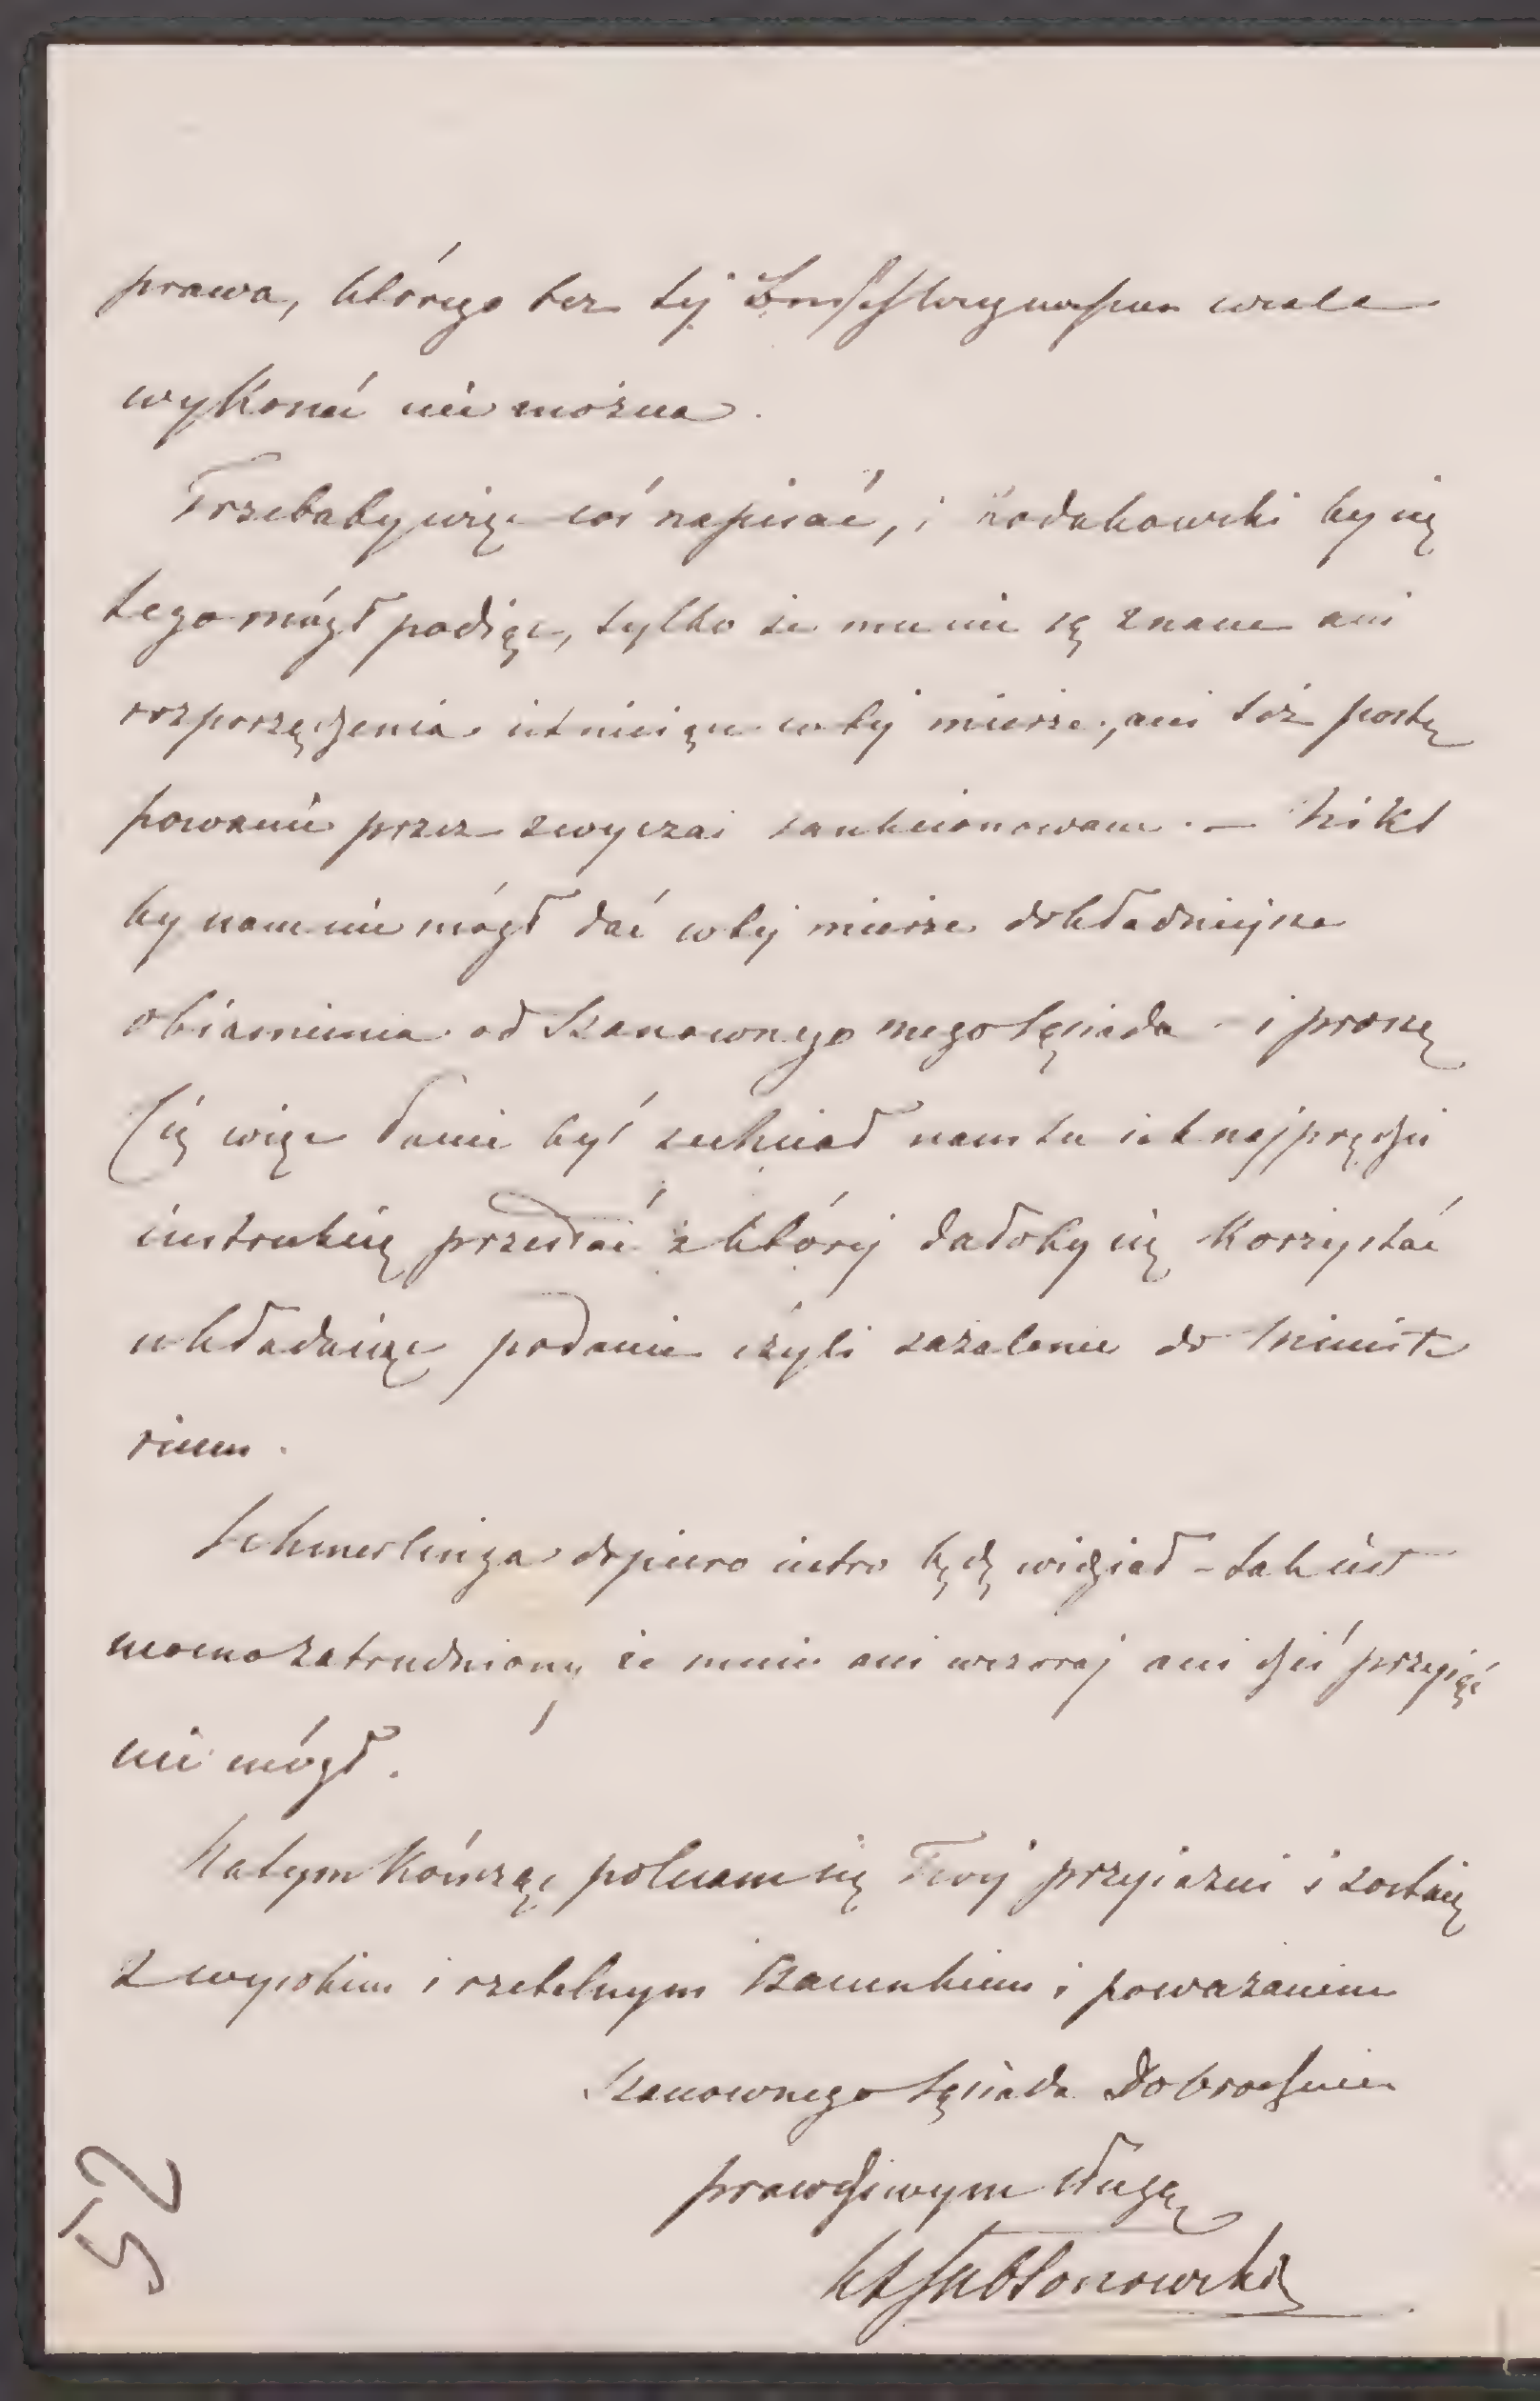 prawa, którego bez tej wcale
wykonać nie można.
Trzebaby więc coś napisać, i Rodakowski by się
tego mógł podjąć, tylko że mu nie są znane ani
rozporządzenia istniejące w tej mierze, ani też postę
powanie przez zwyczai sankcionowane. – Nikt
by nam nie mógł dać w tej mierze dokładniejsze
obiaśnienia od Szanownego mego Sąsiada – i proszę
Cię więc Panie być zechciał nam tu iak najprędzej
instrukcię przesłać z której dałoby się korzystać
układaiąc podanie czyli zażalenie do Ministe
rium.
Schmerlinga dopiero iutro będę widział – tak iest
mocno zatrudniony że mnie ani wczoraj ani dziś przyiąć
nie mógł.
Na tym kończąc polecam się Twej przyiaźni i zostaię
z wysokim i rzetelnym szacunkiem i poważaniem
Szanownego Sąsiada Dobrodzieia
prawdziwym sługą
Jabłonowski
52